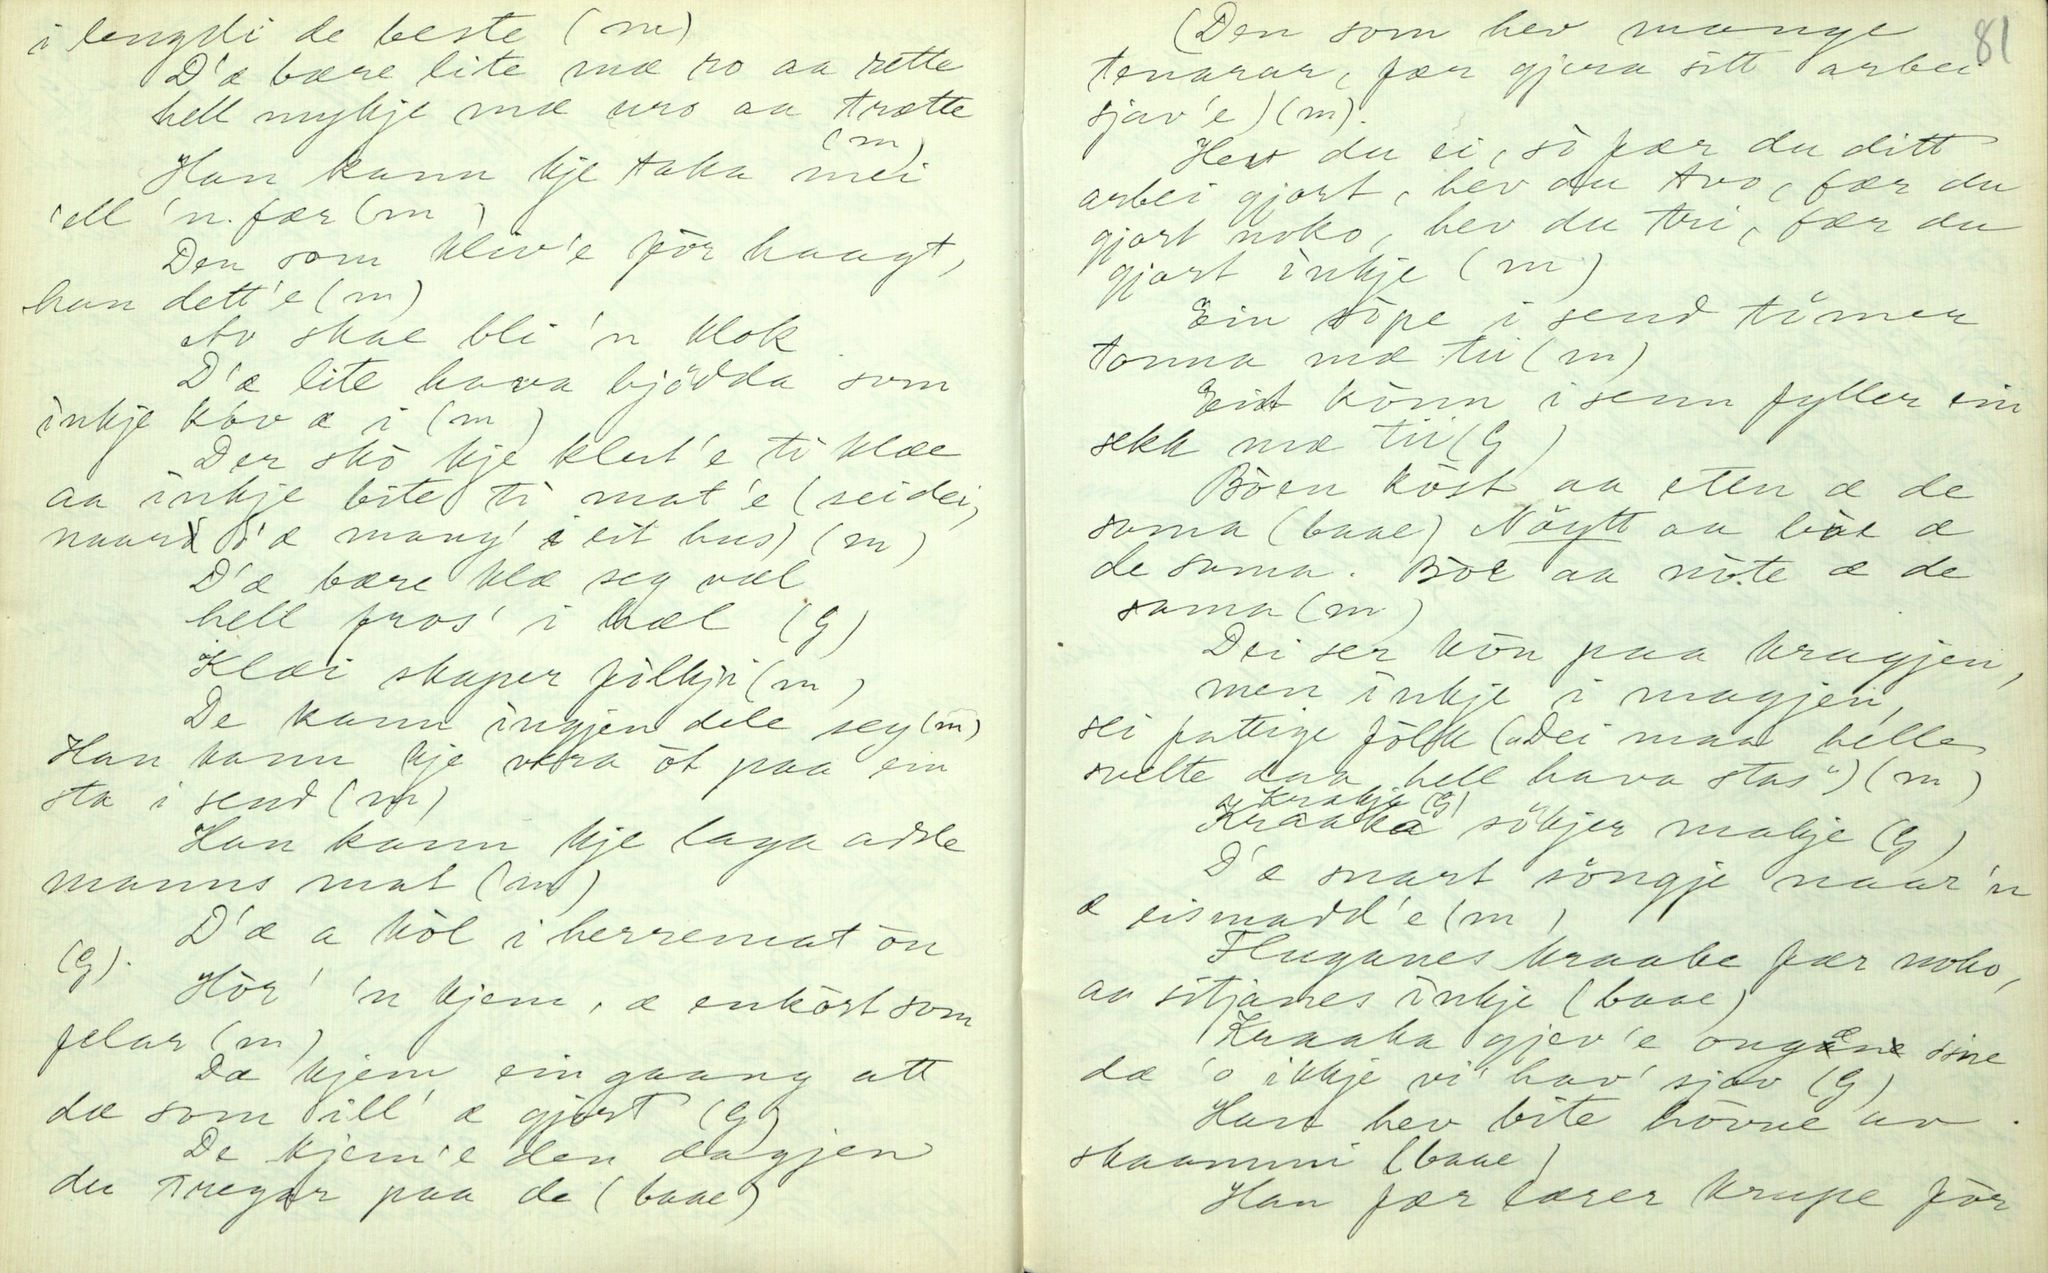 i lengdi de beste (m)
D'æ bære lite mæ ro aa rette
hell mykje mæ uro aa trætte
(m)
Han kann kje taka mei
'ell 'n. fær (m)
Den som kliv'e för haagt,
han dett'e (m)
Av skae bli 'n klok
D'æ lite hava bjödda som
inkje kòv æ i (m)
Der skò kje klest'e ti klæe
aa inkje bite ti mat'e (sei dei,
naar d'æ mang' i eit hus) (m)
D'æ bære klæ seg væl
hell fros' i hæl (G)
Klæi skaper fölkji (m)
De kann ingjen dele seg (m)
Han kann kje vera òt paa ein
sta i send (m)
Han kann kje laga adde
manns mat (m)
D'æ a höl i herremat òn
(G).
Hör' 'n kjem, æ enkòrt som
felar (m)
Dæ kjem eingaang att
dæ som ill' æ gjort (G)
De kjem'e den dagjen
du tregar paa de (baae)
81
(Den som hev mange
tenarar, fær gjera sitt arbei
sjav'e) (m).
Hev du ei, sò fær du ditt
arbei gjort, hev du tvo, fær du
gjort noko, hev du tri, fær du
gjort inkje (m)
Ein sòpe i send tömer
tonna mæ tii (m)
Eit könn i senn fyller ein
sekk mæ tii (G)
Bòen kòst aa eten æ de
sama (baae) Nöytt aa bòe æ
de sama. Bòe aa nòte æ de
sama (m)
Dei ser hòn paa kragjen,
men inkje i magjen,
sei fattige fölk („Dei maa helle
svelte daa, hell hava stas“) (m)
Krakje (G)
Kraaka sökjer makje (G)
D'æ snart söngje naar'n
æ eismadd'e (m)
Fluganes kraake fær noko,
aa sitjanes inkje (baae)
Kraaka gjev'e ongæne sine
dæ 'o ikkje vi' hav' sjav (G)
Han hev bite hòvue av
skaammi (baae)
Han fær lærer krupe för